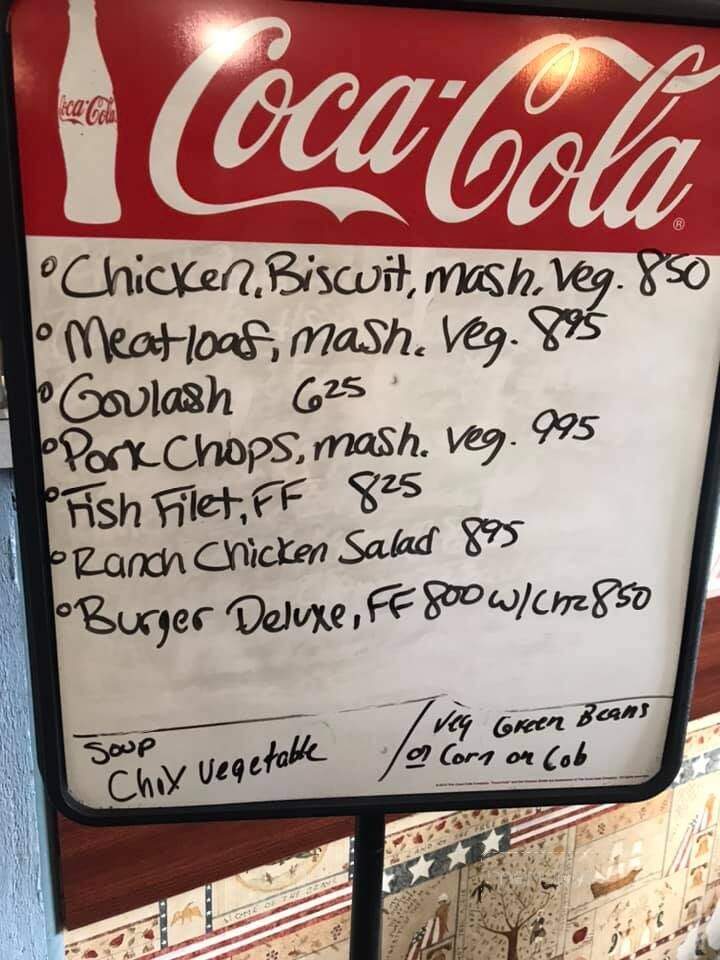 Coca-Cola
Coca-Cola ®
Chicken, Biscuit, mash. Veg. 850
Meatloaf, mash. Veg. 895
Goulash 625
Pork Chops, mash. Veg. 995
Fish Filet, FF 825
Ranch Chicken Salad 895
Burger Deluxe, FF 800 w/chz 850
Soup
Chix Vegetable
Veg Green Beans
or Corn on Cob